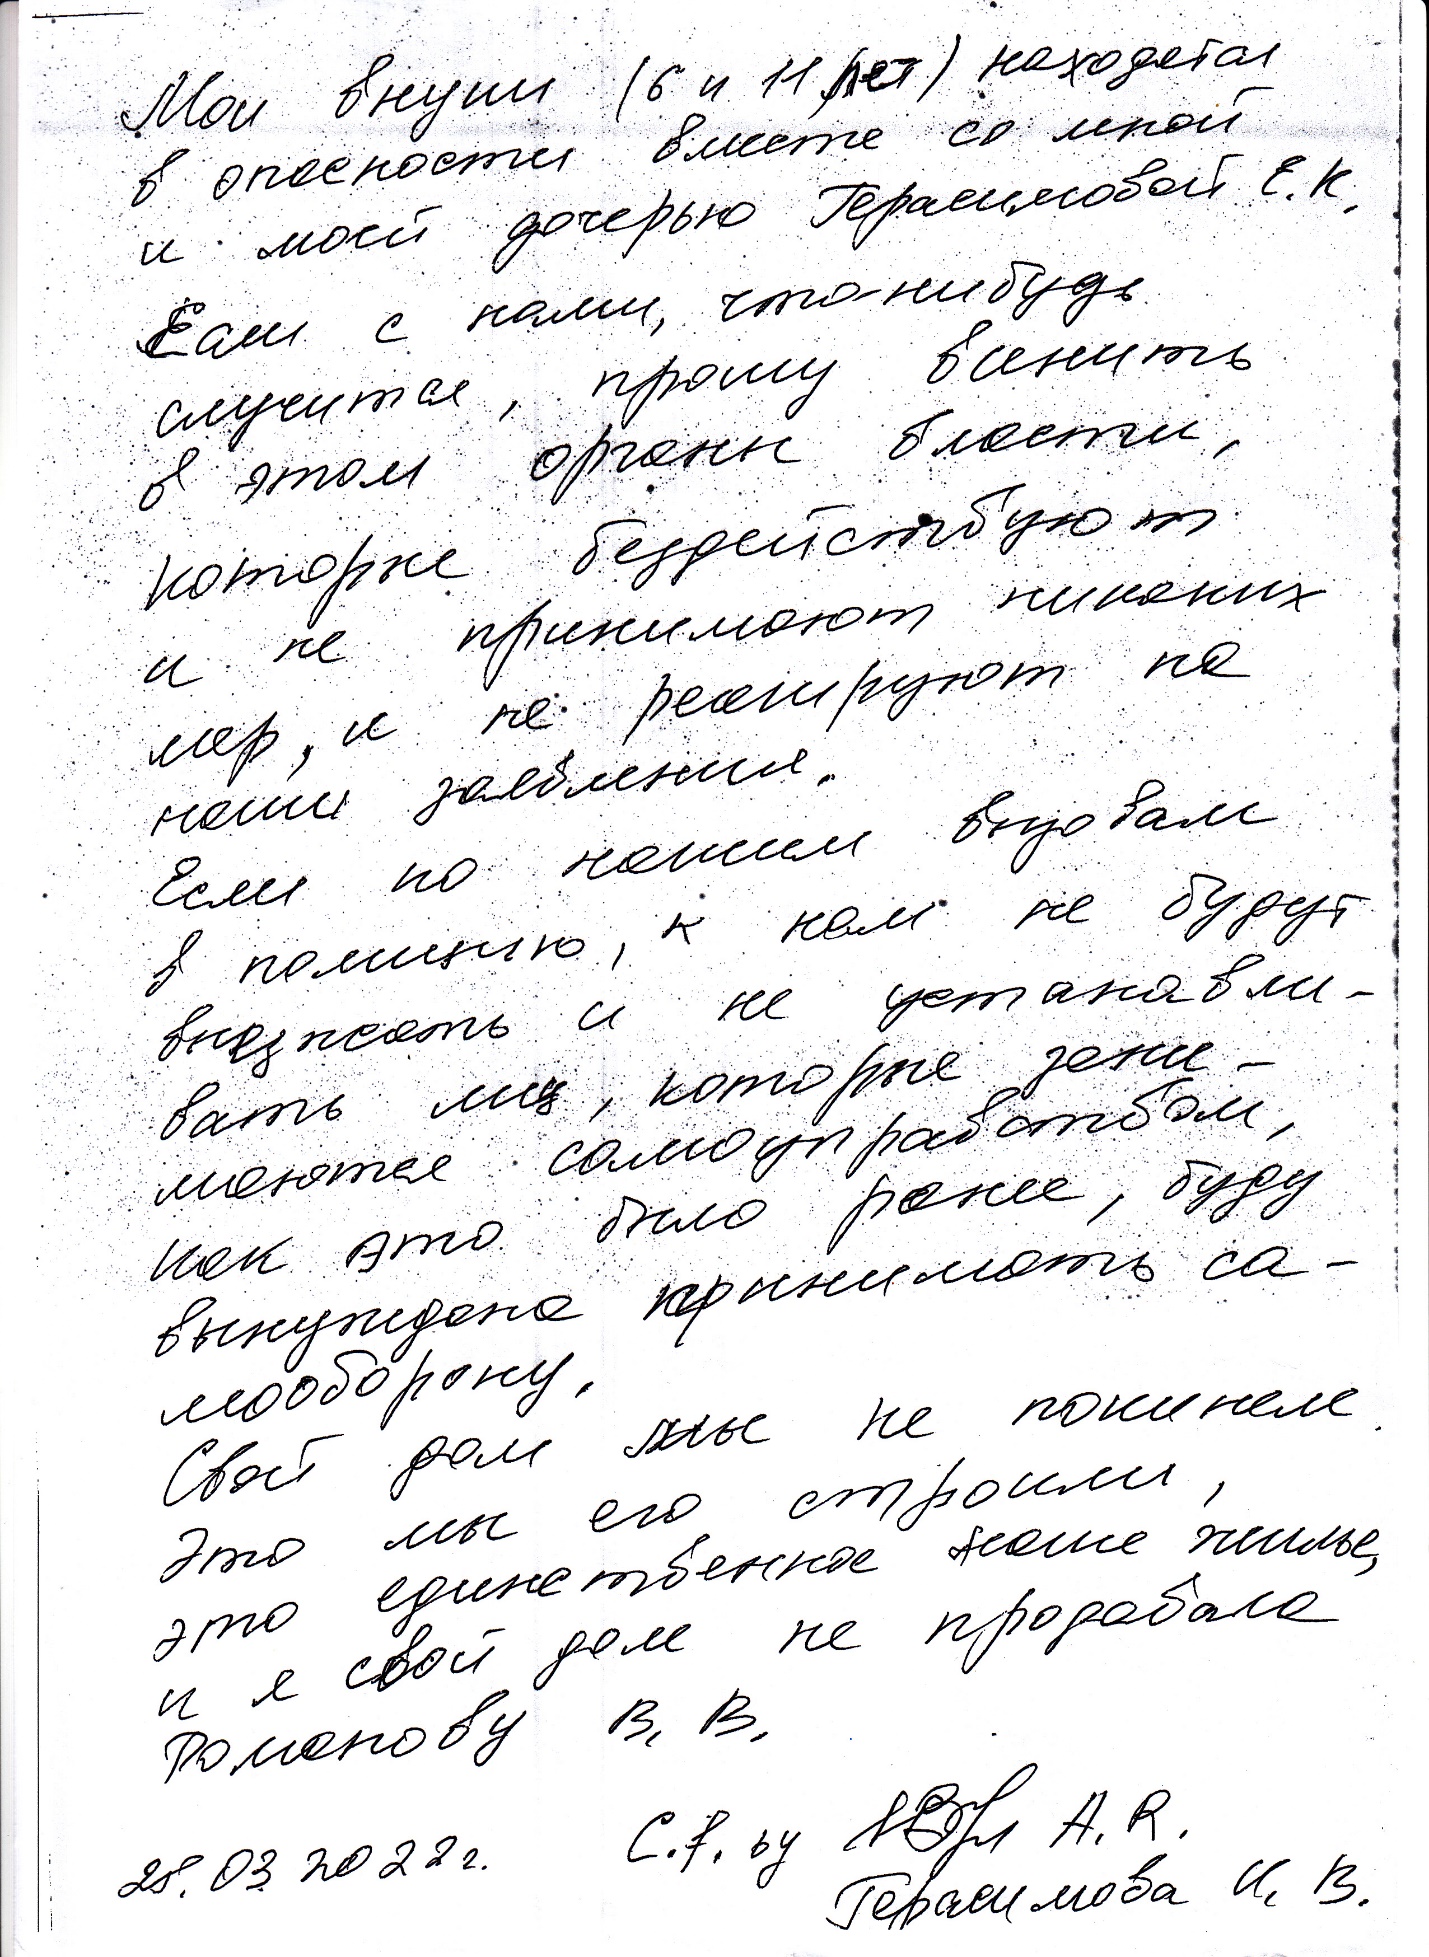 Мои внуки (6 и 11 лет) находятся
в опасности вместе со мной
и моей дочерью Герасимовой Е.К.
Если с нами, что-нибудь
случится, прошу винить
в этом органы власти,
которые бездействуют
и не принимают никаких
мер, и не реагируют на
наши заявления.
Если по нашим вызовам
в полицию, к нам не будут
выезжать и не устанавли-
вать лиц, которые зани-
маются самоуправством,
как это было ранее, буду
вынуждена принимать са-
мооборону.
Свой дом мы не покинем.
Это мы его строили,
это единственное наше жилье,
и я свой дом не продавала
Романову В. В.
28.03.2022г. C.f. by A.R.
Герасимова И. В.